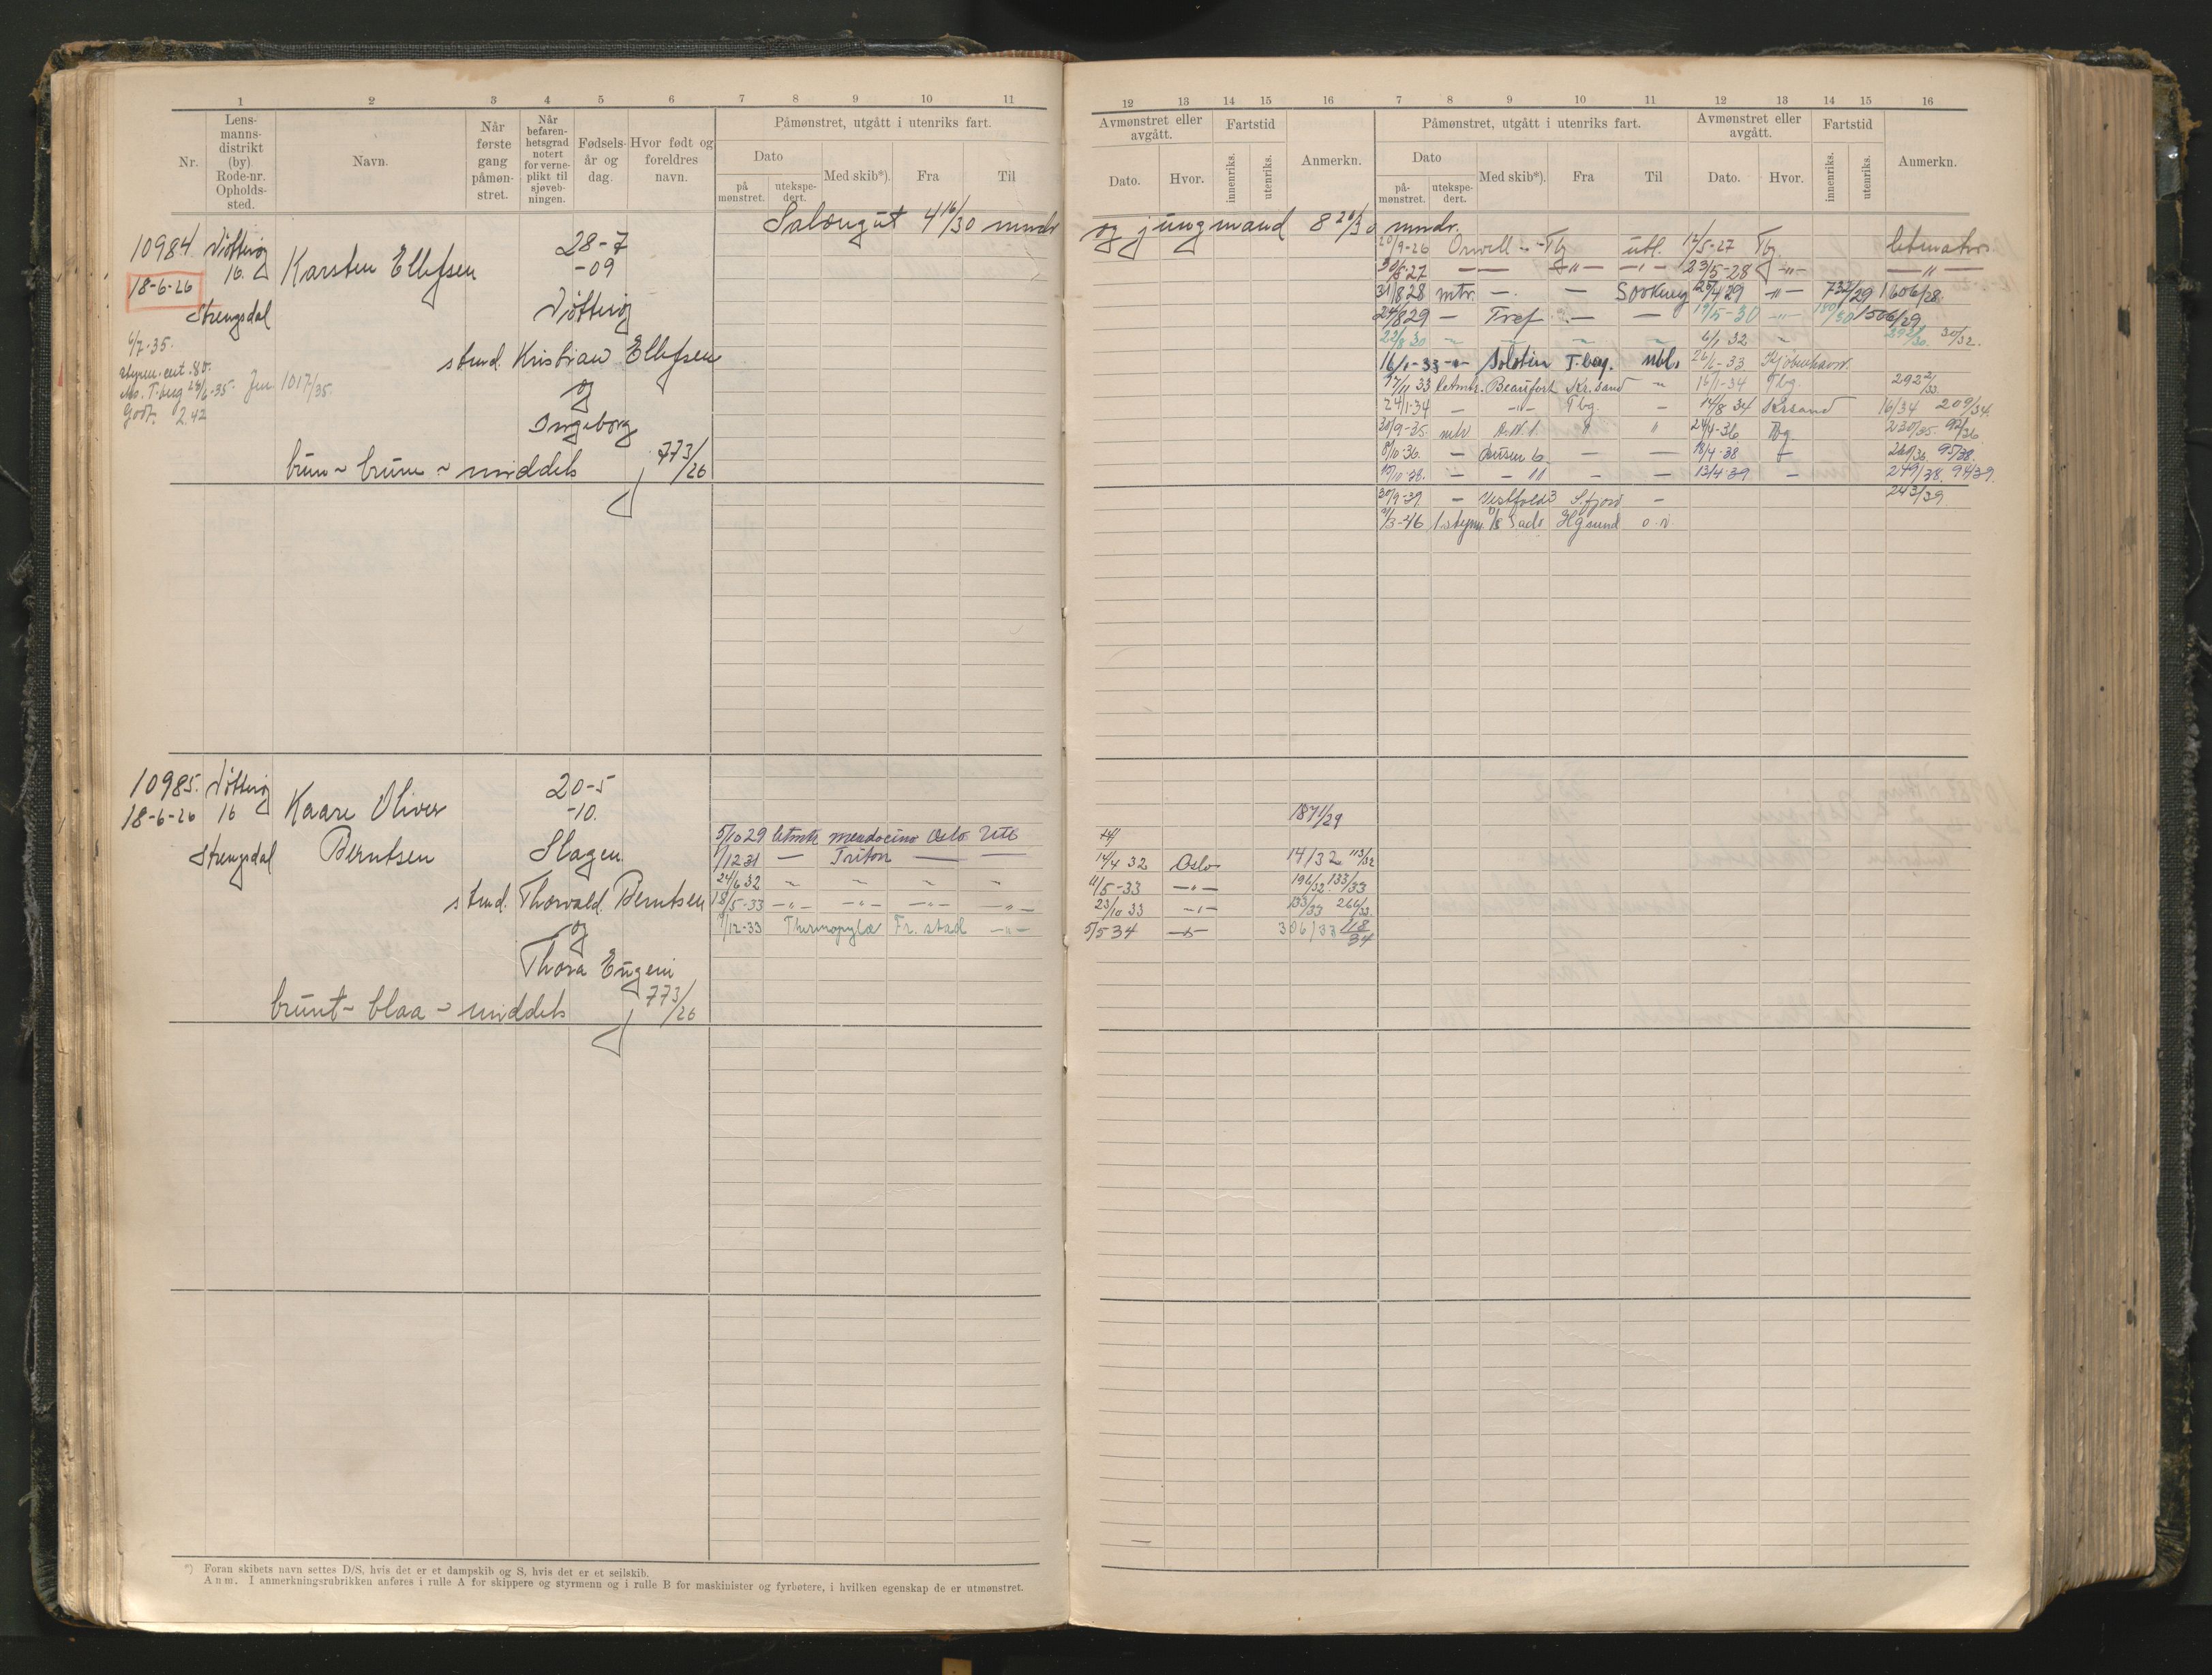 1 2 3 4 5 6 7 8 9 10 11
Nr.
Lens-
manns-
distrikt
(by).
Rode-nr.
Opholds-
sted.
Navn.
Når
første
gang
påmøn-
stret.
Når
befaren-
hetsgrad
notert
for verne-
plikt til
sjøveb-
ningen.
Fødsels-
år og
dag.
Hvor født og
foreldres
navn.
Påmønstret, utgått i utenriks fart.
Dato
på
mønstret.
utekspe-
dert.
Med skib*).
Fra
Til
10984 Nøtterøy
16.
18-6-26
Strengsdal
Karsten Ellefsen
28-7
-09
Nøtterøy
stmd. Kristian Ellefsen
og
Ingeborg
brun - brune - middels 773/26
6/7-35.
T.berg
Godt. 2.42
1017/35.
Salongut 4 16/30 mndr
10985. Nøtterøy
18-6-26 16
Strengsdal
Kaare Oliver
Berntsen
20-5
-10.
Slagen
stmd. Thorvald. Berntsen
og
Thora Eugeni
brunt - blaa - middels 773/26
5/10 29 letmtr mendocino Oslo Utl
1/12 31 — Triton — —
24/6 32 " " " "
18/5-33 —"— —"— —"— —"—
/12-33 Thermopylæ Fr. stad —"—
*) Foran skibets navn settes D/S, hvis det er et dampskib og S, hvis det er et seilskib.
Anm. I anmerkningsrubrikken anføres i rulle A for skippere og styrmenn og i rulle B for maskinister og fyrbøtere, i hvilken egenskap de er utmønstret.
12 13 14 15 16 7 8 9 10 11 12 13 14 15 16
Avmønstret eller
avgått.
Dato.
Hvor.
Fartstid
innenriks.
utenriks.
Anmerkn.
Påmønstret, utgått i utenriks fart.
Dato
på-
mønstret.
utekspe-
dert.
Med skib*).
Fra
Til
Avmønstret eller
avgått.
Dato.
Hvor.
Fartstid
innenriks.
utenriks.
Anmerkn.
og jungmand 8 26/30 mndr.
20/9-26 Orwell Tbg utl. 12/5-27 Tbg. letmatros
30/8-27 — — —"— —"— 23/5-28 —"— —"—
31/8 28 mtr. — — 25/4 29 —"— 732/29 1606/28.
24/8 29 — Tref — — 19/5-30 —"— 180/30 1506/29
22/8 30 " " " " 6/1 32 " 392/30. 30/32.
16/1-33 —"— Solstin T.berg. utl. 26/6-33 Kjøbenhavn.
17/11 33 letmtr. Beaufort Kr.sand " 16/1-34 Tbg. 292/33.
24/1-34 — —"— Tbg. — 14/8 34 Krsand 16/34 209/34.
30/9-35. mtr " " 24/4-36 Tbg. 230/35. 92/36.
8/10-36. — Busen 6 — — 18/4-38 — 260/36. 95/38.
15/10-38. — — 11 — — 13/4-39 — 249/38. 94/39.
30/9-39 — Vestfold 3 S.fjord — 243/39
/3-46 1.styrm. Hgsund
187/29
14/4 32 Oslo 14/32 113/32
11/5-33 —"— 196/32 133/33
23/10 33 —"— 133/33 266/33.
5/5 34 —"— 306/33 118/34